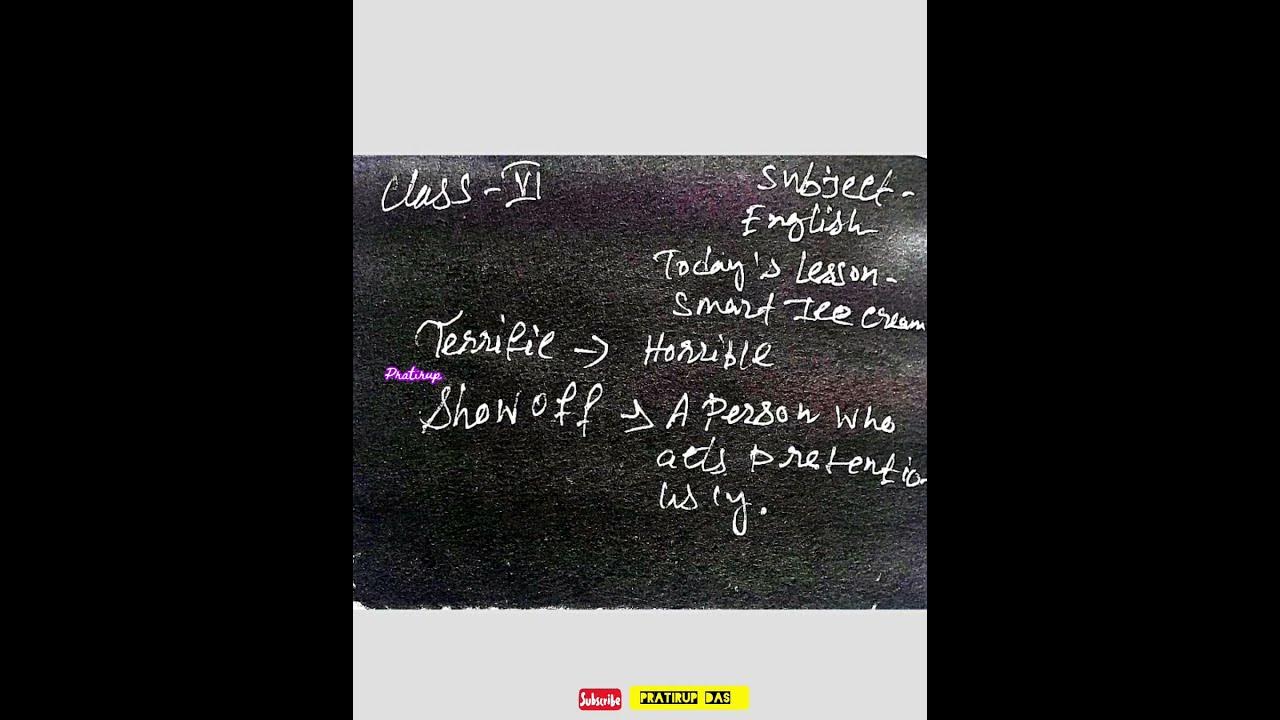 Class - VI
Subject -
English
Today's Lesson -
Smart Ice cream
Terrific → Horrible
Pratirup
Show Off → A Person Who
acts Pretentio-
usly.
Subscribe
PRATIRUP DAS